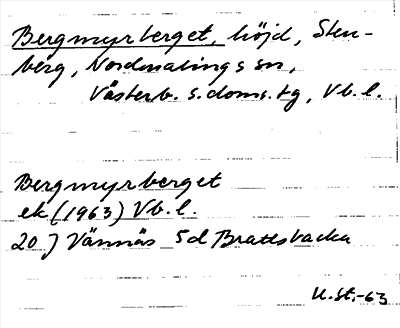 Bergmyrberget, höjd, Sten-
berg, Nordmalings sn,
Västerb. s. doms. tg, Vb. l.
Bergmyrberget
ek (1963) Vb. l.
20 J Vännäs 5d Brattsbacka
U.St.-63